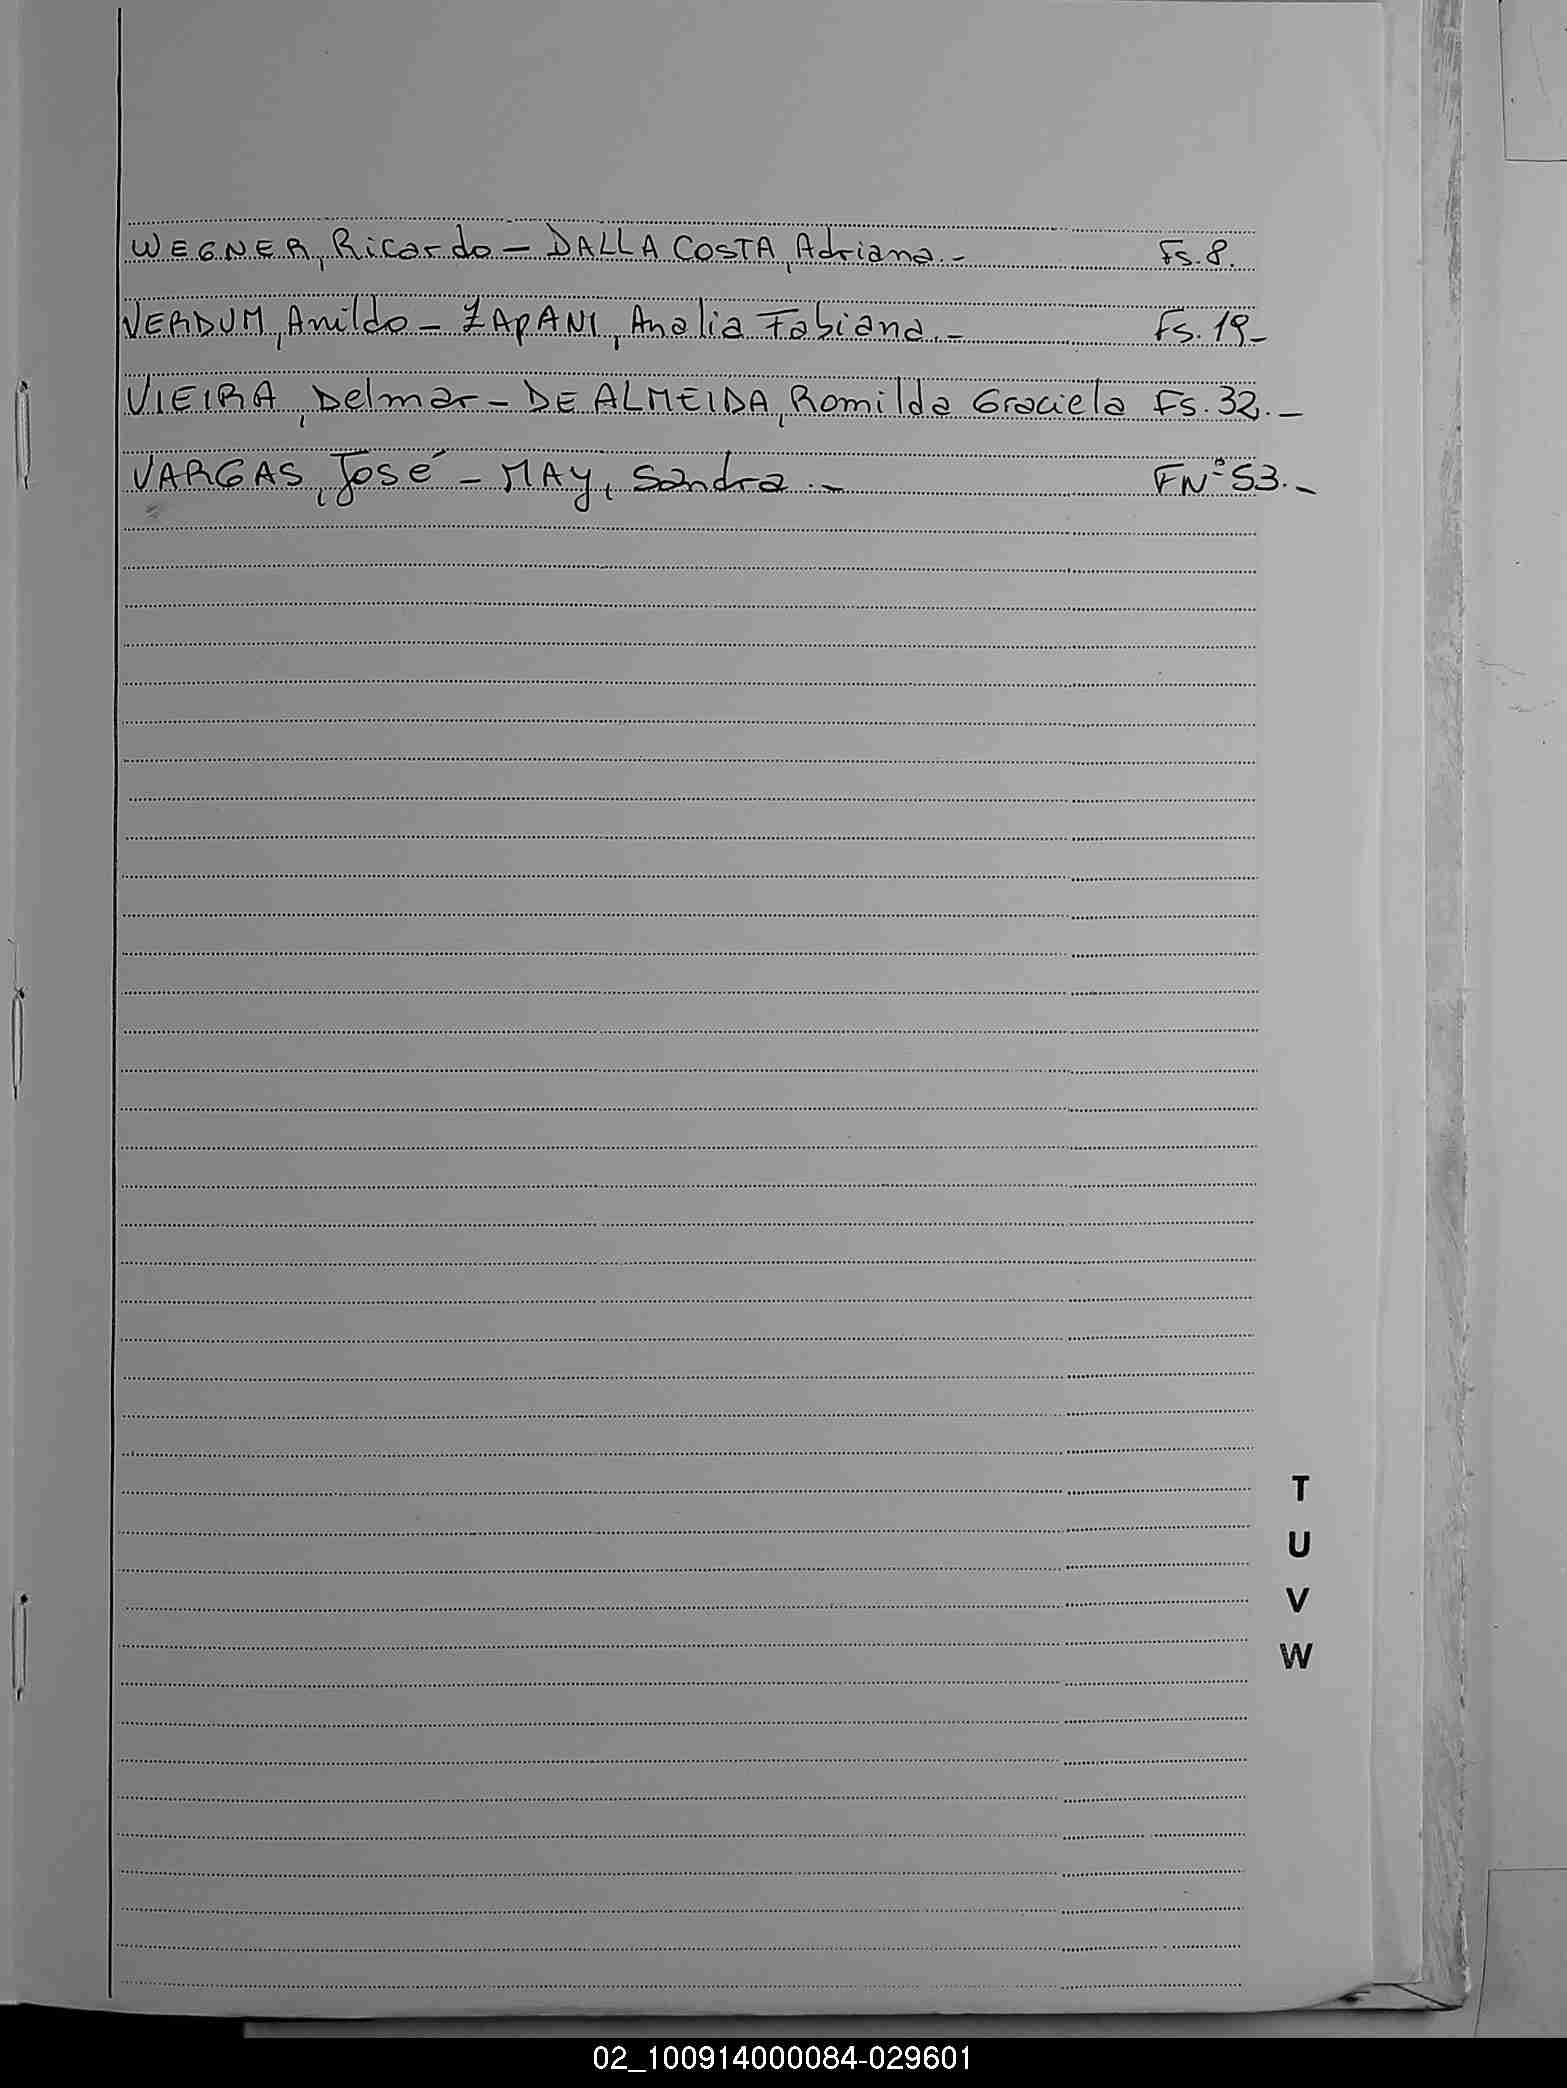 WEGNER, Ricardo – DALLA COSTA, Adriana.- Fs. 8.
VERDUM, Anildo – ZAPANI, Analia Fabiana.- Fs. 19-
VIEIRA, Delmar – DE ALMEIDA, Romilda Graciela Fs. 32.-
VARGAS, José – MAY, Sandra.- FNº 53.-
T
U
V
W
02_100914000084-029601